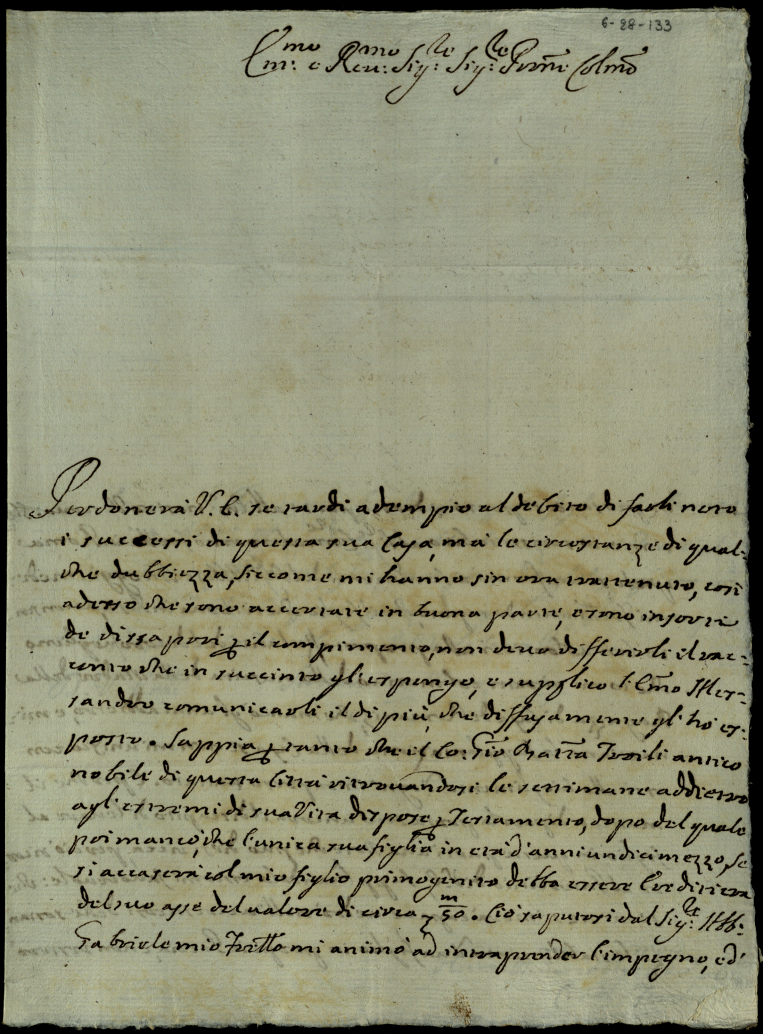 6-28-133
Em:mo e Reu:mo Sig:re Sig:re Prõne Colmõ
Perdonerà V. E. se tardi adempio al debito di farli noto
i successi di questa sua Casa, mà le circostanze di qual-
che dubbiezza, siccome mi hanno sin ora trattenuto, così
adesso che sono accertate in buona parte, e sono insorte
de dissapori p il compimento, non devo differirli il rac-
conto che in succinto gli espongo, e supplico l'Emo
sandro comunicarli il di più, che diffusamente gli hò es-
posto. Sappia p tanto che il Co: Gio Batta Troili antico
nobile di questa Città ritrovandosi le settimane addietro
agl'estremi di sua Vita dispose p Testamento, dopo del quale
poi mancò, che l'unica sua figlia in età d'anni undici mezzo, se
si accaserà col mio figlio primogenito debba essere Ereditiera
del suo asse del valore di circa 50m. Ciò saputosi dal Sig:re Abb:
Gabriele mio Frello mi animò ad intraprender l'impegno, ed